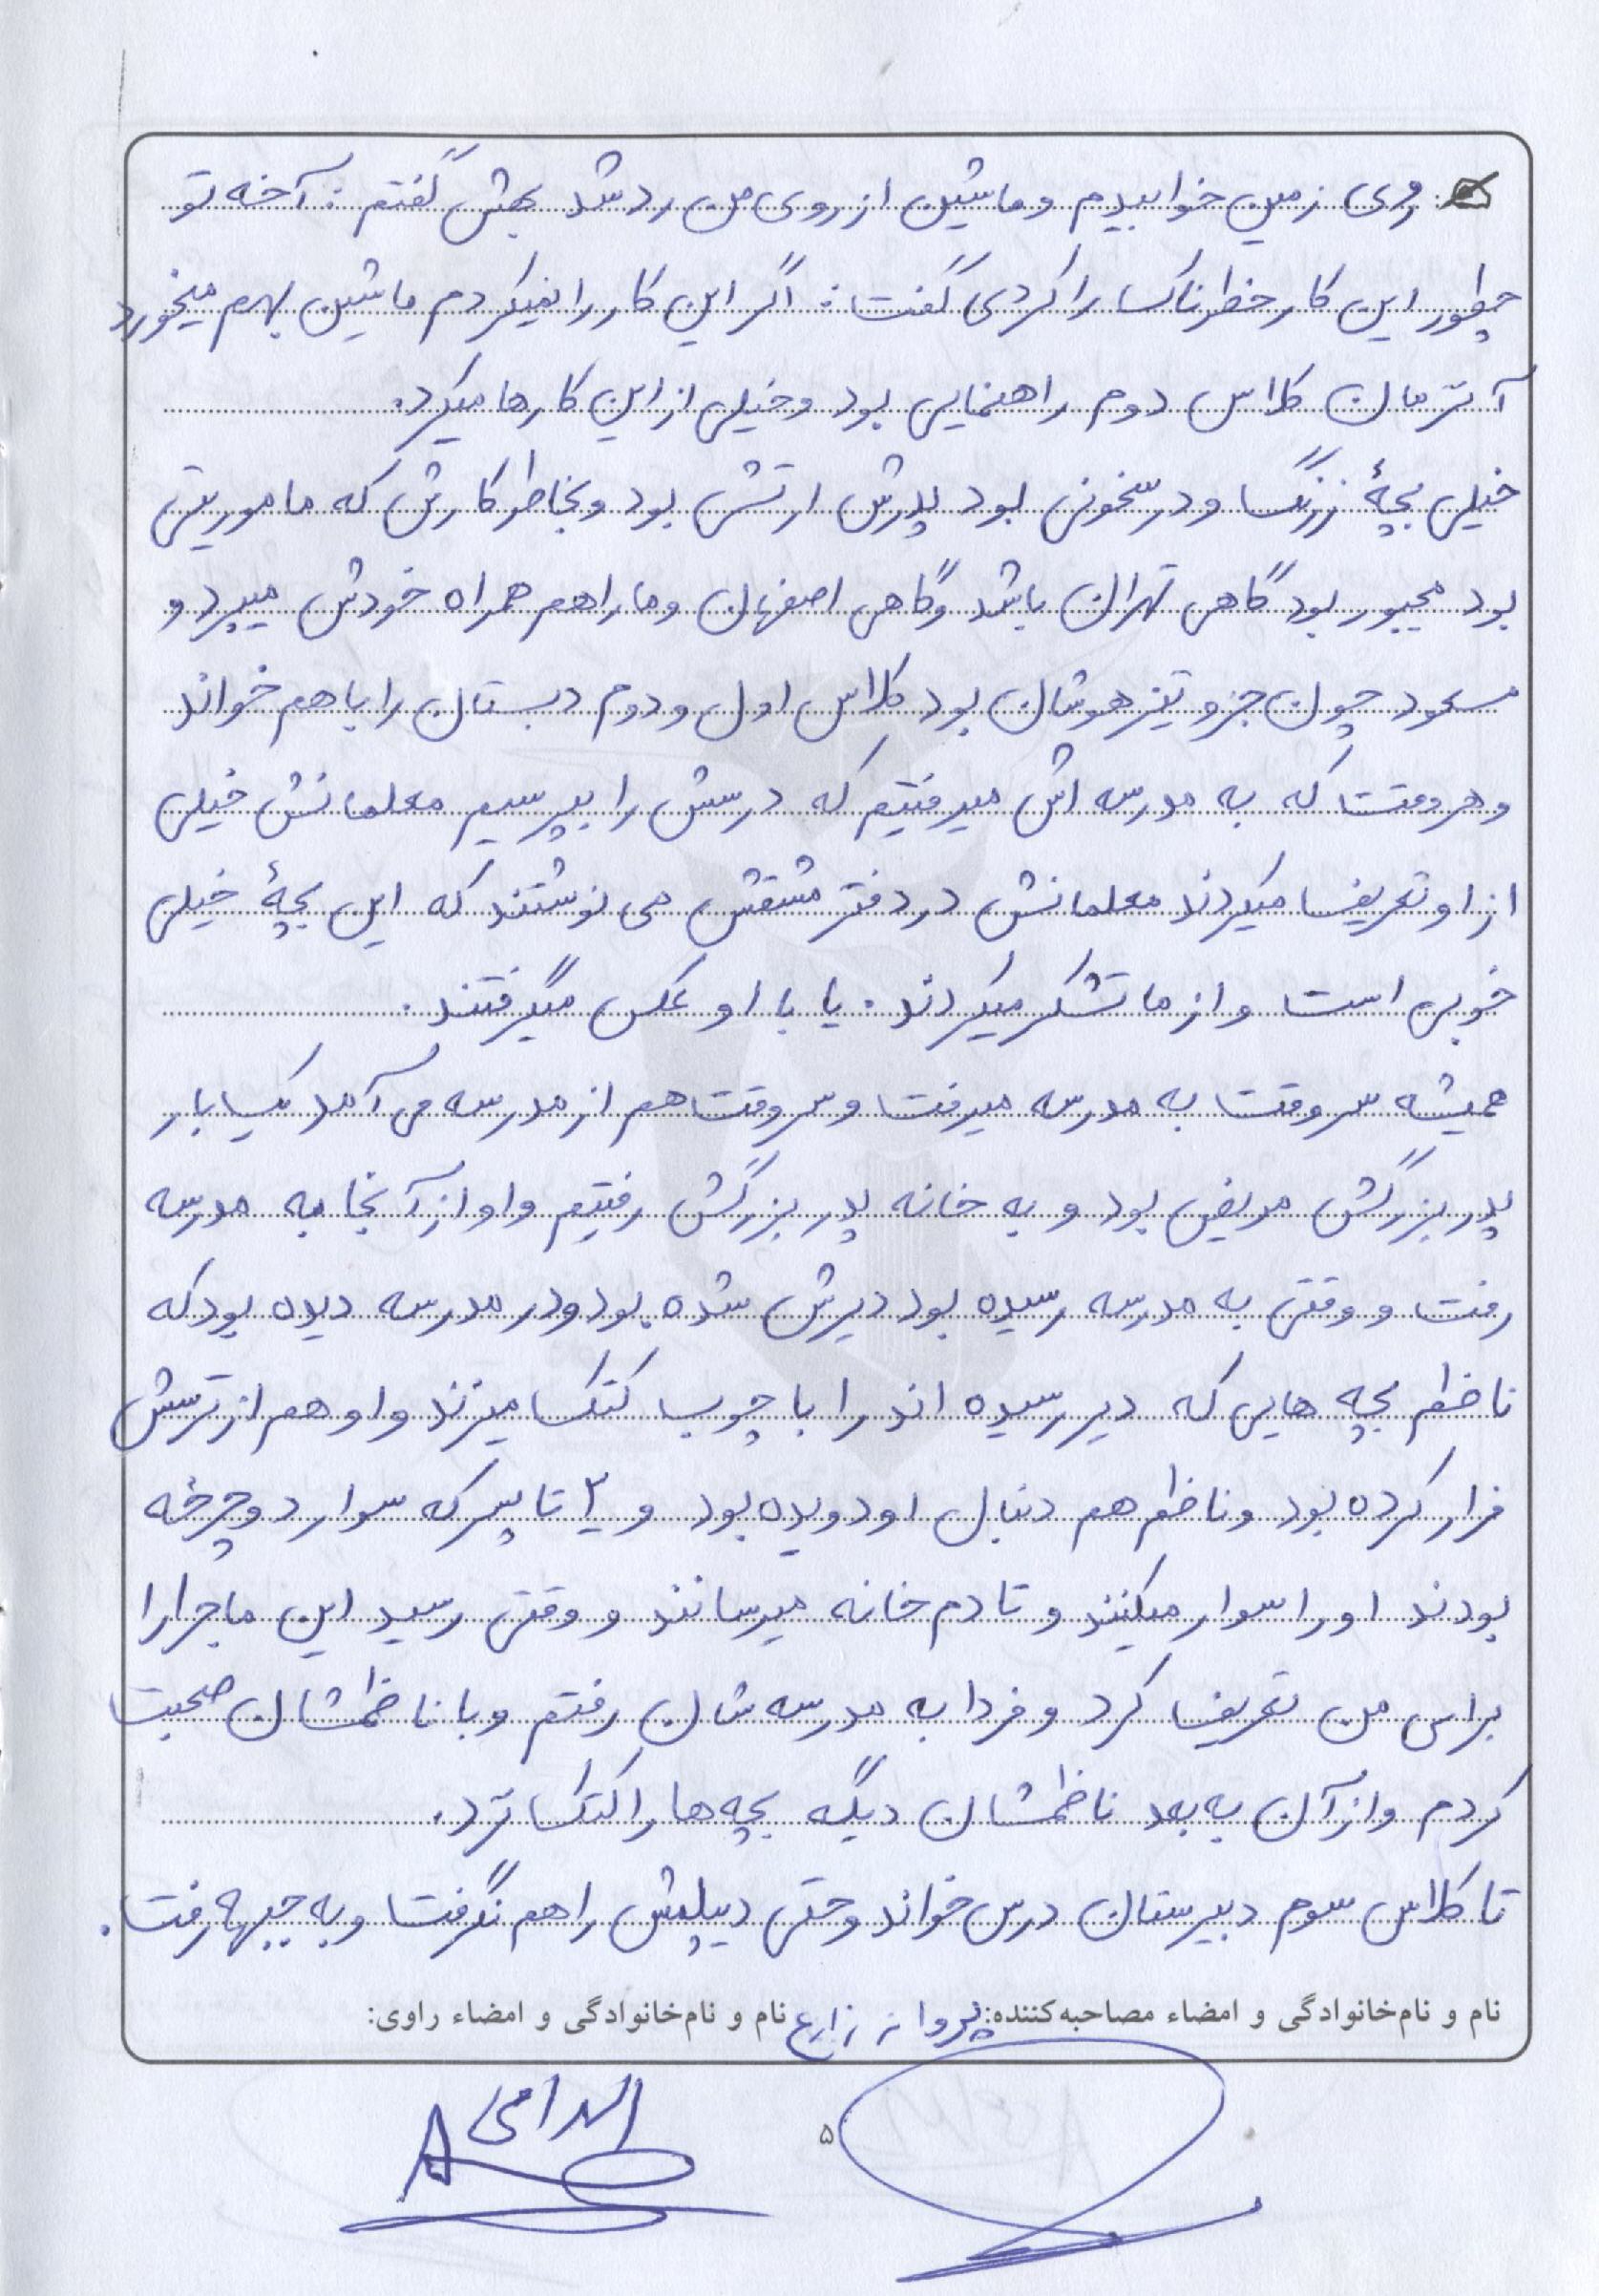 روی زمین خوابیدم و ماشین از روی من رد شد بهش گفتم: آخه تو
چطور این کار خطرناک را کردی گفت: اگر این کار را نمیکردم ماشین بهم میخورد
آن زمان کلاس دوم راهنمایی بود و خیلی از این کارها میکرد.
خیلی بچۀ زرنگ و درسخونی بود پدرش ارتشی بود و بخاطر کارش که ماموریتی
بود مجبور بود گاهی تهران باشد و گاهی اصفهان و ما را هم همراه خودش میبرد و
مسعود چون جزو تیزهوشان بود کلاس اول و دوم دبستان را با هم خواند
و هر وقت که به مدرسه اش میرفتیم که درسش را بپرسیم معلمانش خیلی
از او تعریف میکردند معلمانش در دفتر مشقش می نوشتند که این بچۀ خیلی
خوبی است و از ما تشکر میکردند. یا با او عکس میگرفتند.
همیشه سروقت به مدرسه میرفت و سروقت هم از مدرسه می آمد یک بار
پدربزرگش مریض بود و به خانه پدربزرگش رفتیم و او از آنجا به مدرسه
رفت و وقتی به مدرسه رسیده بود دیرش شده بود و در مدرسه دیده بود که
ناظم بچه هایی که دیر رسیده اند را با چوب کتک میزند و او هم از ترسش
فرار کرده بود و ناظم هم دنبال او دویده بود و ۲ تا پسر که سوار دوچرخه
بودند او را سوار میکنند و تا دم خانه میرسانند و وقتی رسید این ماجرا را
برای من تعریف کرد و فردا به مدرسه شان رفتم و با ناظمشان صحبت
کردم و از آن به بعد ناظمشان دیگه بچه ها را کتک نزد.
تا کلاس سوم دبیرستان درس خواند و حتی دیپلمش را هم نگرفت و به جبهه رفت.
نام و نام‌خانوادگی و امضاء مصاحبه‌کننده: پروانه زارع نام و نام‌خانوادگی و امضاء راوی:
۵